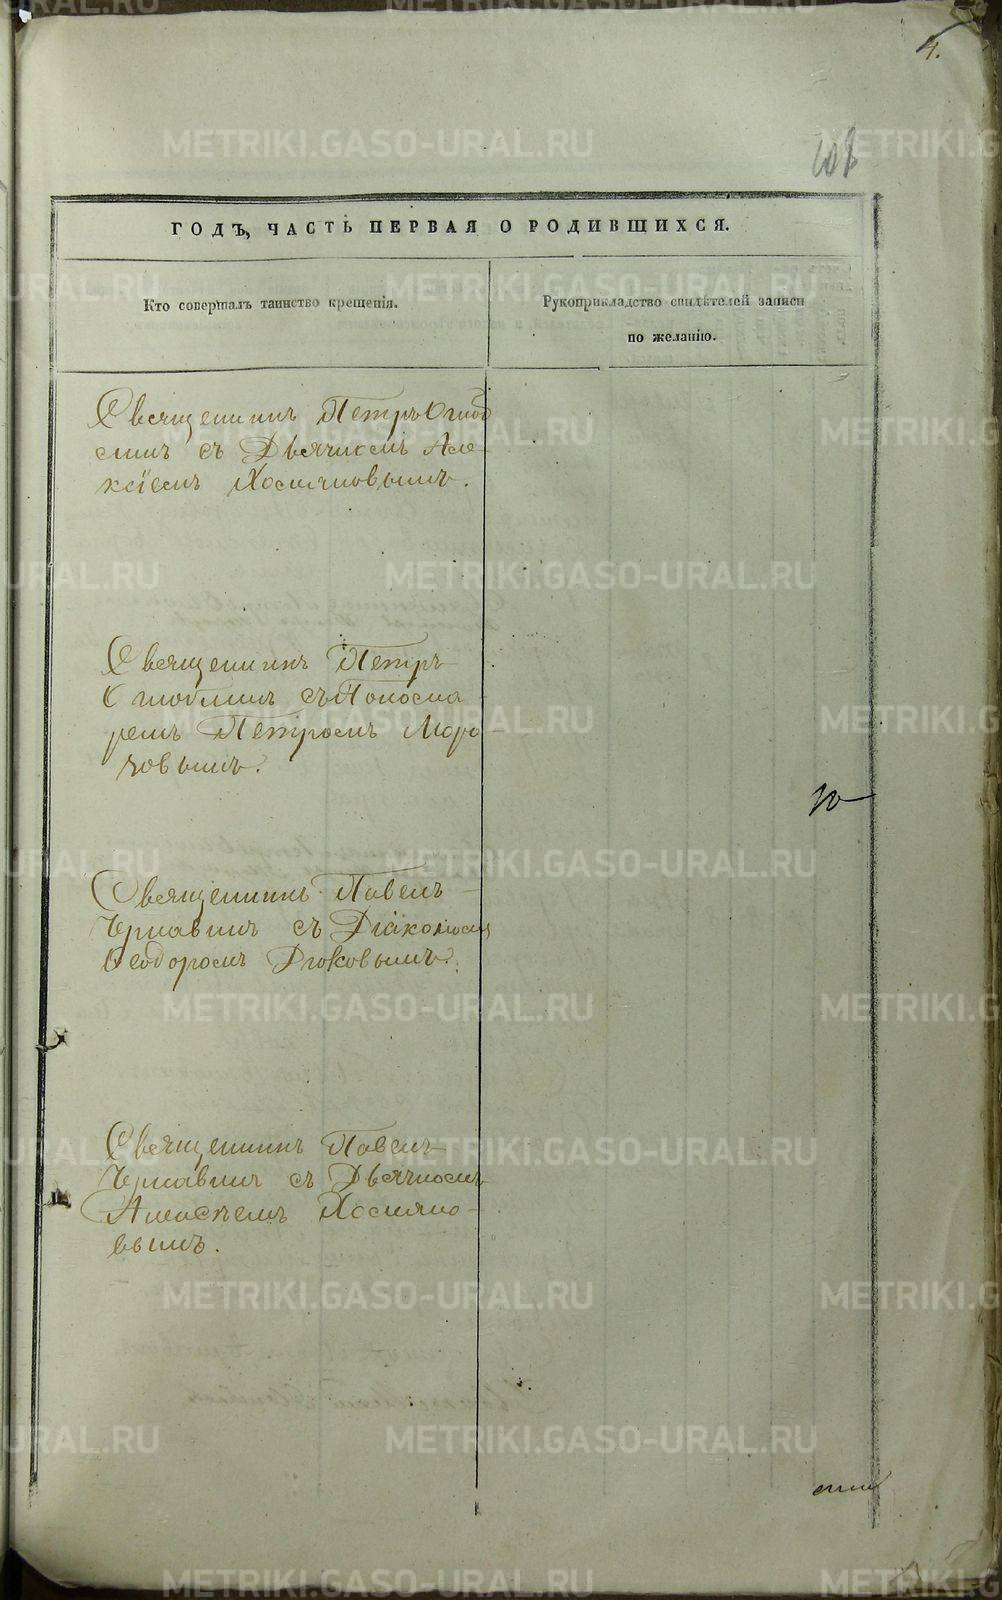 4.
108
ГОДЪ, ЧАСТЬ ПЕРВАЯ О РОДИВШИХСЯ.
Кто совершалъ таинство крещенія.
Рукоприкладство свидѣтелей записи
по желанію.
Священникъ Петръ Стоб
скимъ съ Дьячкомъ Але-
ксѣемъ Хосияновымъ.
Священникъ Петръ
съ Пономa
ремъ Петромъ Моро
зовымъ.
Священникъ Павелъ
Чернавинъ съ Діакономъ
Ѳеодоромъ Дюковымъ.
Священникъ Павелъ
Чернавинъ съ Дьячкомъ
Алексѣемъ
вымъ.
METRIKI.GASO-URAL.RU